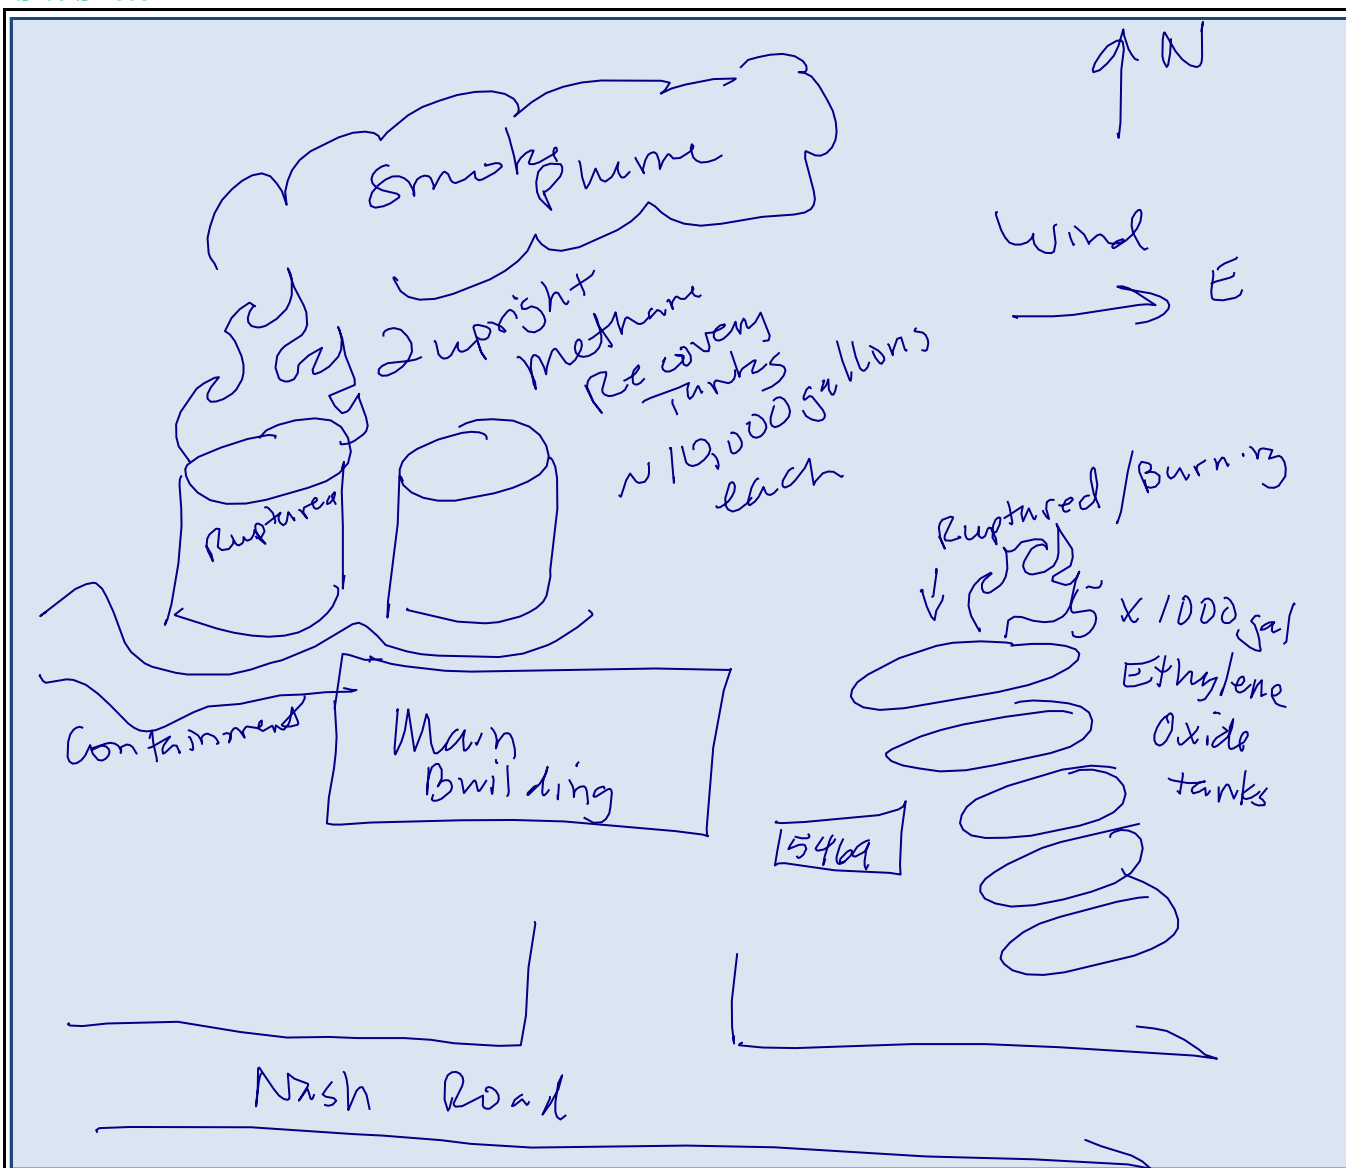 N
Smoke
Plume
Wind
E
2 upright
Methane
Recovery
Tanks
~10,000 gallons
each
Ruptured
Ruptured/Burning
5 x 1000 gal
Ethylene
Oxide
tanks
Containment
Main
Building
Nash Road